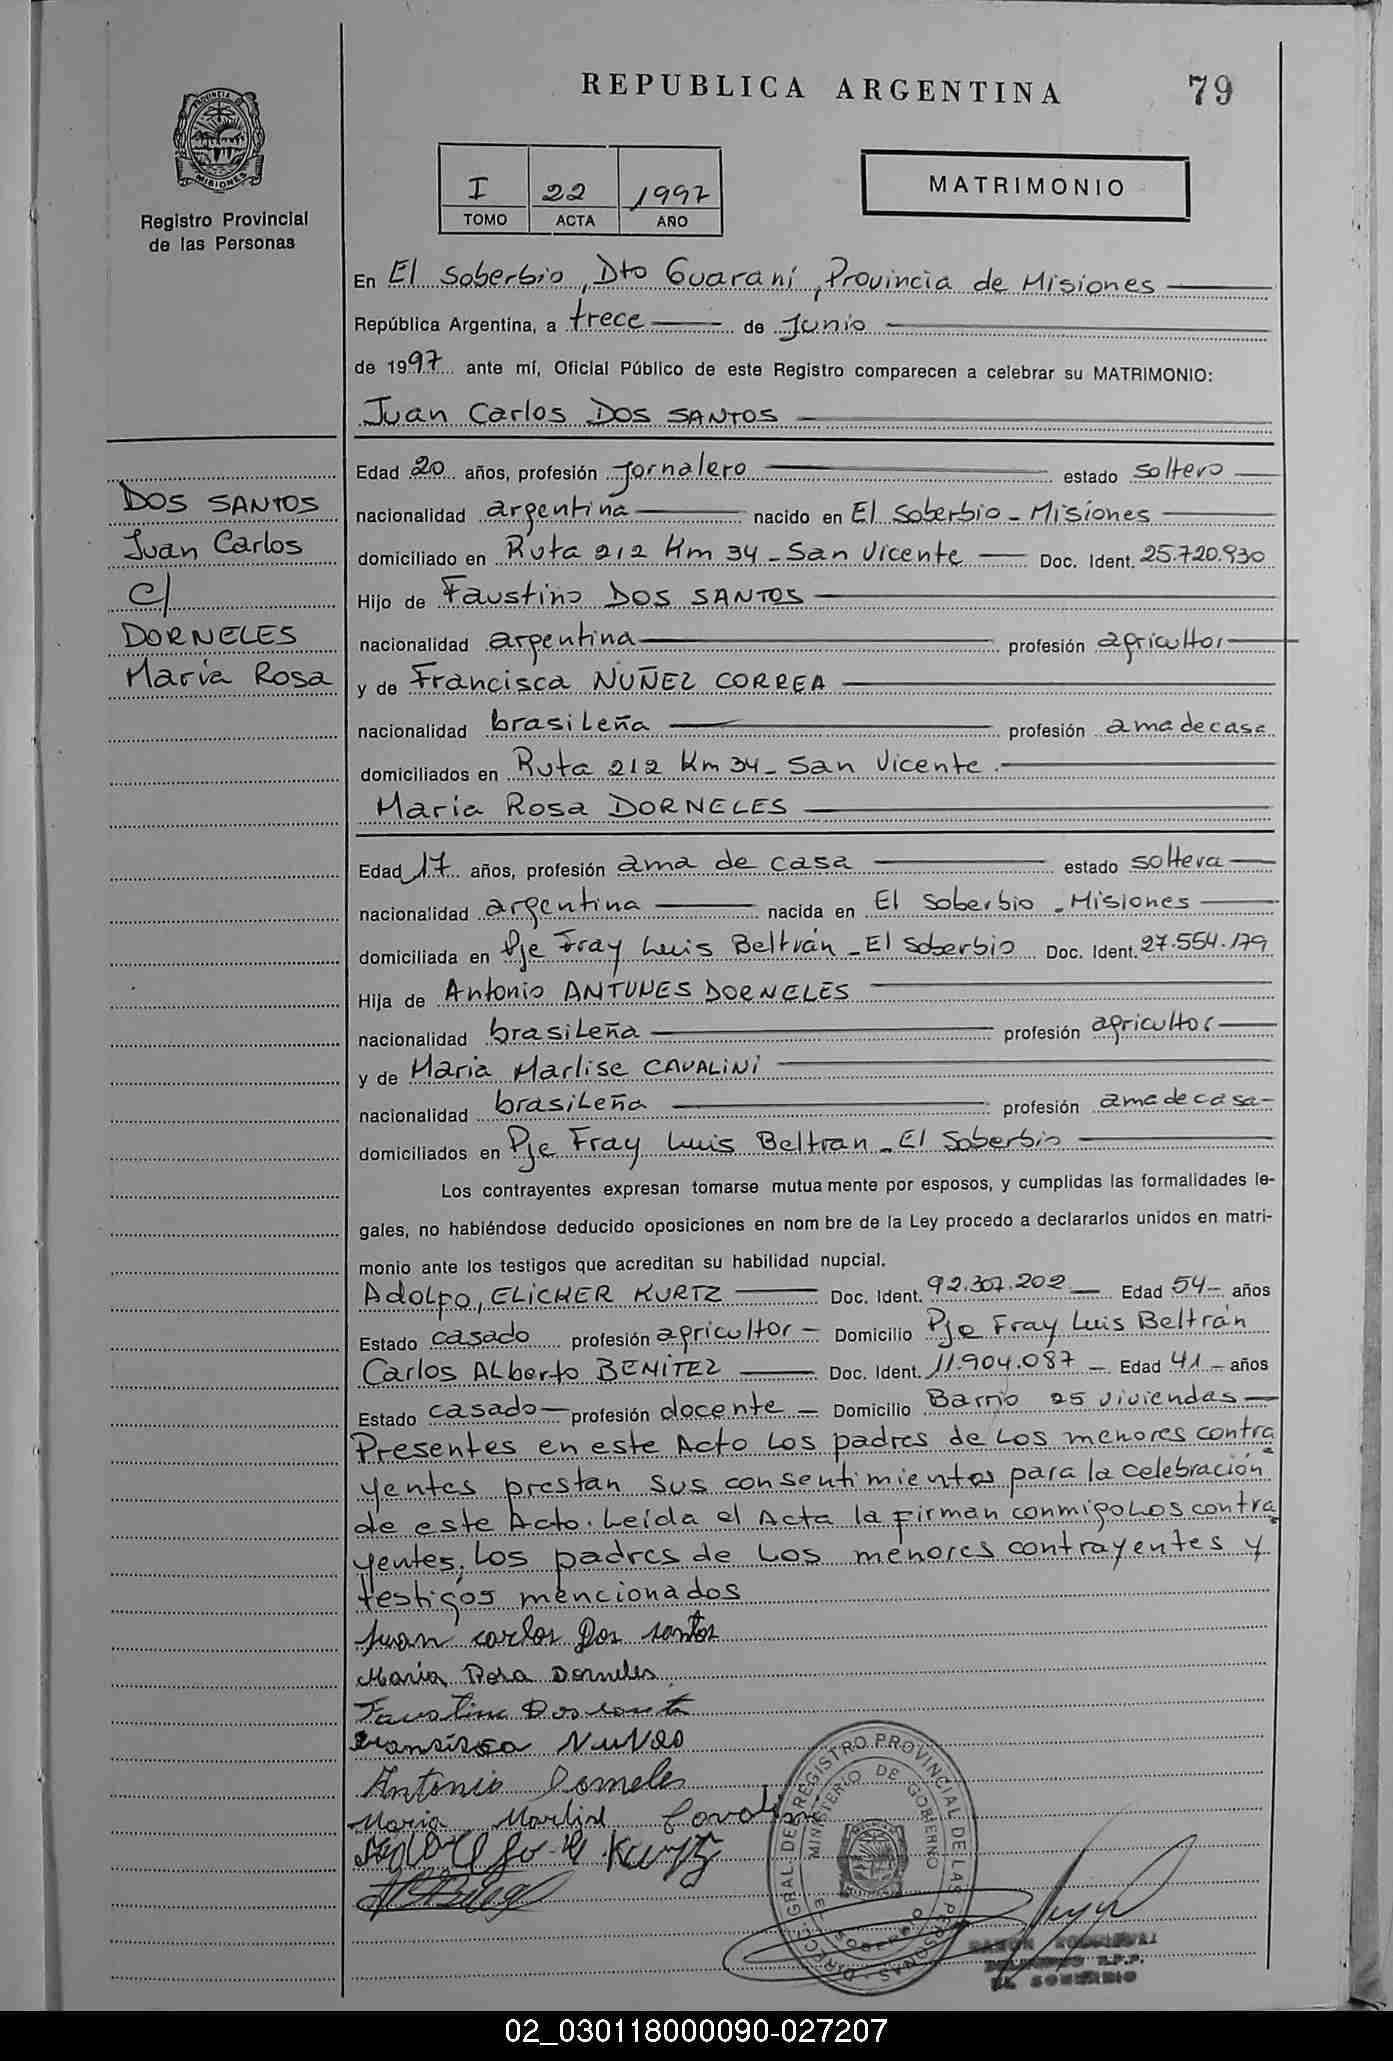 REPUBLICA ARGENTINA 79
PROVINCIA DE
MISIONES
Registro Provincial
de las Personas
I 22 1997
TOMO ACTA AÑO
MATRIMONIO
En El Soberbio, Dto Guaraní, Provincia de Misiones
República Argentina, a trece de Junio
de 1997 ante mí, Oficial Público de este Registro comparecen a celebrar su MATRIMONIO:
Juan Carlos DOS SANTOS
DOS SANTOS
Juan Carlos
c/
DORNELES
María Rosa
Edad 20 años, profesión Jornalero estado soltero
nacionalidad argentina nacido en El Soberbio - Misiones
domiciliado en Ruta 212 Km 34 - San Vicente Doc. Ident. 25.720.930
Hijo de Faustino DOS SANTOS
nacionalidad argentina profesión agricultor
y de Francisca NUÑEZ CORREA
nacionalidad brasileña profesión ama de casa
domiciliados en Ruta 212 Km 34 - San Vicente
María Rosa DORNELES
Edad 17 años, profesión ama de casa estado soltera
nacionalidad argentina nacida en El Soberbio - Misiones
domiciliada en Pje Fray Luis Beltrán - El Soberbio Doc. Ident. 27.554.179
Hija de Antonio ANTUNES DORNELES
nacionalidad brasileña profesión agricultor
y de Maria Marlise CAVALINI
nacionalidad brasileña profesión ama de casa
domiciliados en Pje Fray Luis Beltran - El Soberbio
Los contrayentes expresan tomarse mutua mente por esposos, y cumplidas las formalidades le-
gales, no habiéndose deducido oposiciones en nom bre de la Ley procedo a declararlos unidos en matri-
monio ante los testigos que acreditan su habilidad nupcial.
Adolfo, ELICKER KURTZ Doc. Ident. 92.307.202 Edad 54 años
Estado casado profesión agricultor Domicilio Pje Fray Luis Beltrán
Carlos Alberto BENITEZ Doc. Ident. 11.904.087 Edad 41 años
Estado casado profesión docente Domicilio Barrio 25 viviendas
Presentes en este Acto los padres de los menores contra
yentes prestan sus consentimientos para la celebración
de este Acto. Leída el Acta la firman conmigo los contra
yentes, los padres de los menores contrayentes y
testigos mencionados
Juan carlos Dos santos
Maria Rosa Dorneles
Faustino Dos santo
Fransisca NuNes
Antonio Dorneles
Maria Marlise Cavalini
DIRECC. GRAL DEL REGISTRO PROVINCIAL DE LAS PERSONAS
MINISTERIO DE GOBIERNO
EL SOBERBIO
EL SOBERBIO
02_030118000090-027207